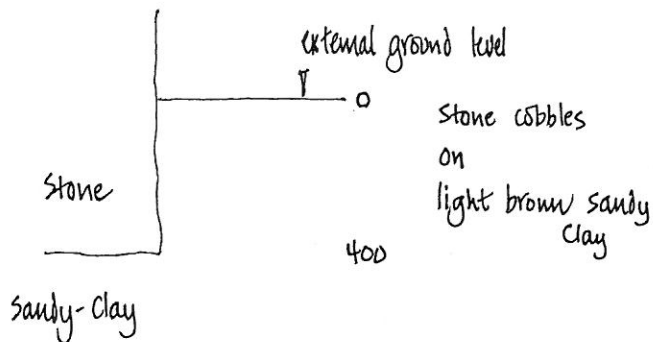 external ground level
0
Stone cobbles
on
light brown sandy
Clay
Stone
400
Sandy-Clay